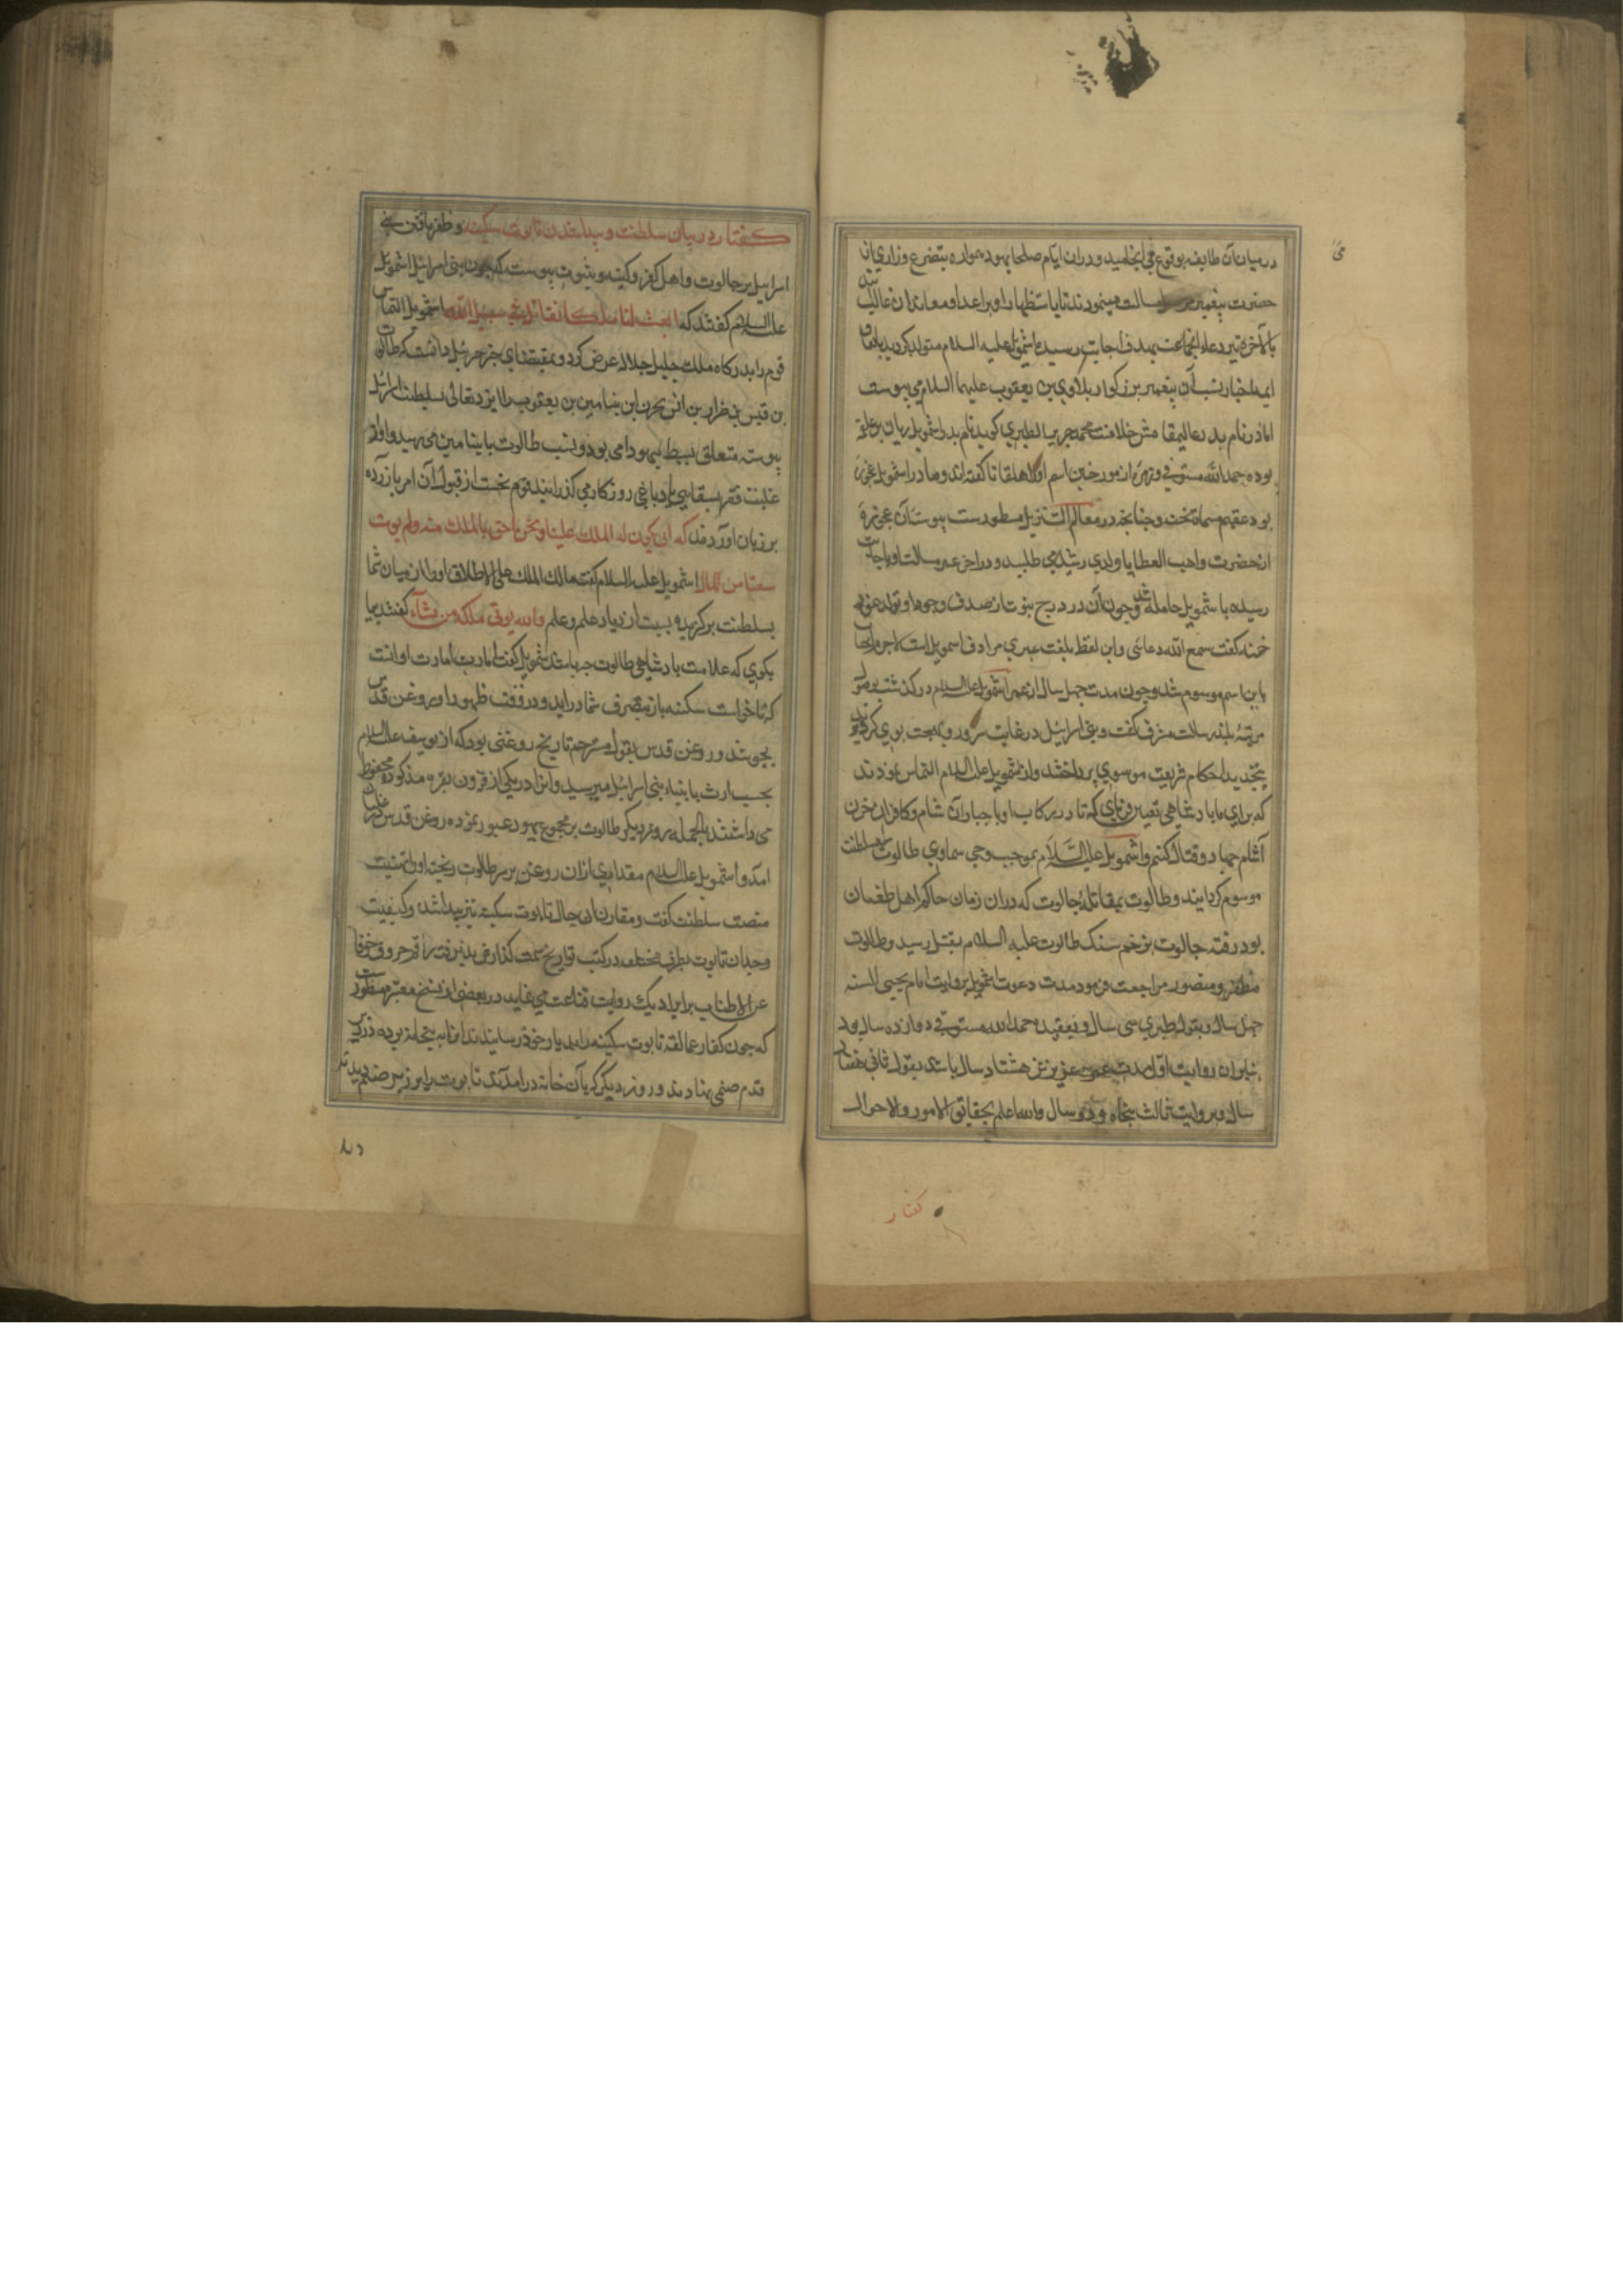 درمیان آن طایفه بوقوع می انجامید و دران ایام صلحا یهود همواره بتضرع و زاری از
حضرت پیغمبر رسالت مینمودند تا باستظهار او بر اعدا و معاندان غالب
بالآخره تیر دعاء انجماعت بهدف اجابت رسیده اشمویل علیه السلام متولد کردید باتفاق
ایمه اخبار نسب آن پیغمبر بزرکوار بلاوی بن یعقوب علیهما السلام می پیوست
اما در نام پدر عالیمقامش خلافست محمد جریر الطبری کوید نام پدر اشمویل ریان بن علقمه
بوده حمد الله مستوفی و زمره از مورخین اسم او هلقاتا کفته اند و مادر اشمویل عجوزه
بود عقیمه مسماة بحنه و چنانچه در معالم التنزیل مسطورست پیوسته آن عجوزه
از حضرت واهب العطایا ولدی رشید می طلبید و در اخر عمر مسالت او باجابت
رسیده باشمویل حامله شد و چون آن در درج نبوت از صدف وجود او تولد نمود
حنه کفت سمع الله دعائی و این لفظ بلغت عبری مرادف اسمویل است لاجرم انجناب
باین اسم موسوم شد و چون مدت چهل سال از عمر اشمویل علیه السلام در کذشت بوصول
مرتبهٔ بلند رسالت مشرف کشت و بنی اسرائیل در غایت سرور و بهجت بوی کرویدند
بتجدید احکام شریعت موسوی پرداختند و از اشمویل علیه السلام التماس نمودند
که برای ما پادشاهی تعیین فرمای که تا در رکاب او با جباران شام و کافران
آثام جهاد و قتال کنیم و اشمویل علیه السلام بموجب وحی سماوی طالوت بسلطنت
موسوم کردانید و طالوت بمقاتلهٔ جالوت که دران زمان حاکم اهل طغیان
بود رفته جالوت بزخم سنک طالوت علیه السلام بقتل رسید و طالوت
مظفر و منصور مراجعت فرمود مدت دعوت اشمویل بروایت امام یحیی السنه
چهل سال و بقول طبری سی سال و بعقیده حمد الله مستوفی دوازده سال بود
بنابران روایت اول مدت عمر عزیزش هشتاد سال باشد بقول ثانی هفتاد
سال و بروایت ثالث پنجاه و دو سال والله اعلم بحقایق الامور والاحوال
کفتار
کفتار در بیان سلطنت و پیدا شدن تابوت سکینه و ظفر یافتن بنی
اسرایل بر جالوت و اهل کفر و کینه و بثبوت پیوسته که چون بنی اسرائیل اشمویل
علیه السلام کفتند که ابعث لنا ملکا نقاتل فی سبیل الله اشمویل التماس
قوم را بدرکاه ملک جلیل جل جلاله عرض کرد و بمقتضای خبر جبرئیل دانست که طالوت
بن قیس بن ضرار بن انس بن یحرن ابن بنیامین بن یعقوب را ایزد تعالی سلطنت اسرائیل
پیوسته متعلق بسبط یهودا می بود و نسب طالوت بابنیامین می رسید و او از
غایت فقر بسقایی یا دباغی روزکار می کذرانید قوم نخست از قبول آن امر باز زده
بر زبان اوردند که انی یکون له الملک علینا و نحن احق بالملک منه ولم یوت
سعة من المال اشمویل علیه السلام کفت مالک الملک علی الاطلاق او را از میان شما
بسلطنت برکزیده بسبب ازدیاد علم و علم والله یوتی ملکه من یشآء کفتند بما
بکوی که علامت پادشاهی طالوت چه باشد اشمویل کفت امارت امارت او انست
که تابوت سکینه باز بتصرف شما دراید و در وقت ظهور او روغن قدس
بجوشد و روغن قدس بقول مترجم تاریخ روغنی بود که از یوسف علیه السلام
بحسب ارث بابنیاء بنی اسرائیل میرسید و انرا در یکی از قرون بقره مذکوره محفوظ
می داشتند بالجمله روز دیکر طالوت بر مجموع یهود عبور نموده روغن قدس
امد و اشمویل علیه السلام مقداری ازان روغن بر سر طالوت ریخت و او را تهنیت
منصب سلطنت کفت و مقارن این حال تابوت سکینه نیز پیدا شد و کیفیت
وجدان تابوت بطرق مختلفه در کتب تواریخ سمت کذارش پذیرفته راقم حروف خوفا
عن الاطناب بر ایراد یک روایت قناعت می نماید در بعضی از نسخ معتبر مسطور
که چون کفار عمالقه تابوت سکینه را بدیار خود رسانیدند انرا به بتخانه برده در زیر
قدم صنمی نهادند و روز دیکر که بآن خانه درامدند تابوت را بر زبر صنم دیدند